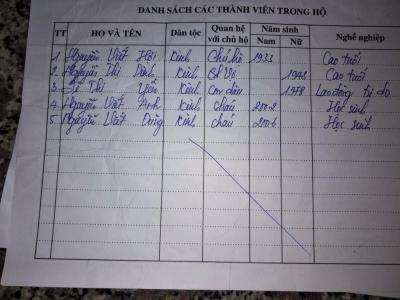 DANH SÁCH CÁC THÀNH VIÊN TRONG HỘ
TT HỌ VÀ TÊN Dân tộc Quan hệ với chủ hộ Năm sinh Nam Nữ Nghề nghiệp
1. Nguyễn Viết Hội Kinh Chủ hộ Cao tuổi
2. Nguyễn Thị Kinh Vợ 1943 Cao tuổi
3. Lê Thị Yến Kinh con dâu 1978 Lao động tự do
4. Nguyễn Viết Anh Kinh cháu 2002 Học sinh
5. Nguyễn Viết Dũng Kinh cháu 2006 Học sinh